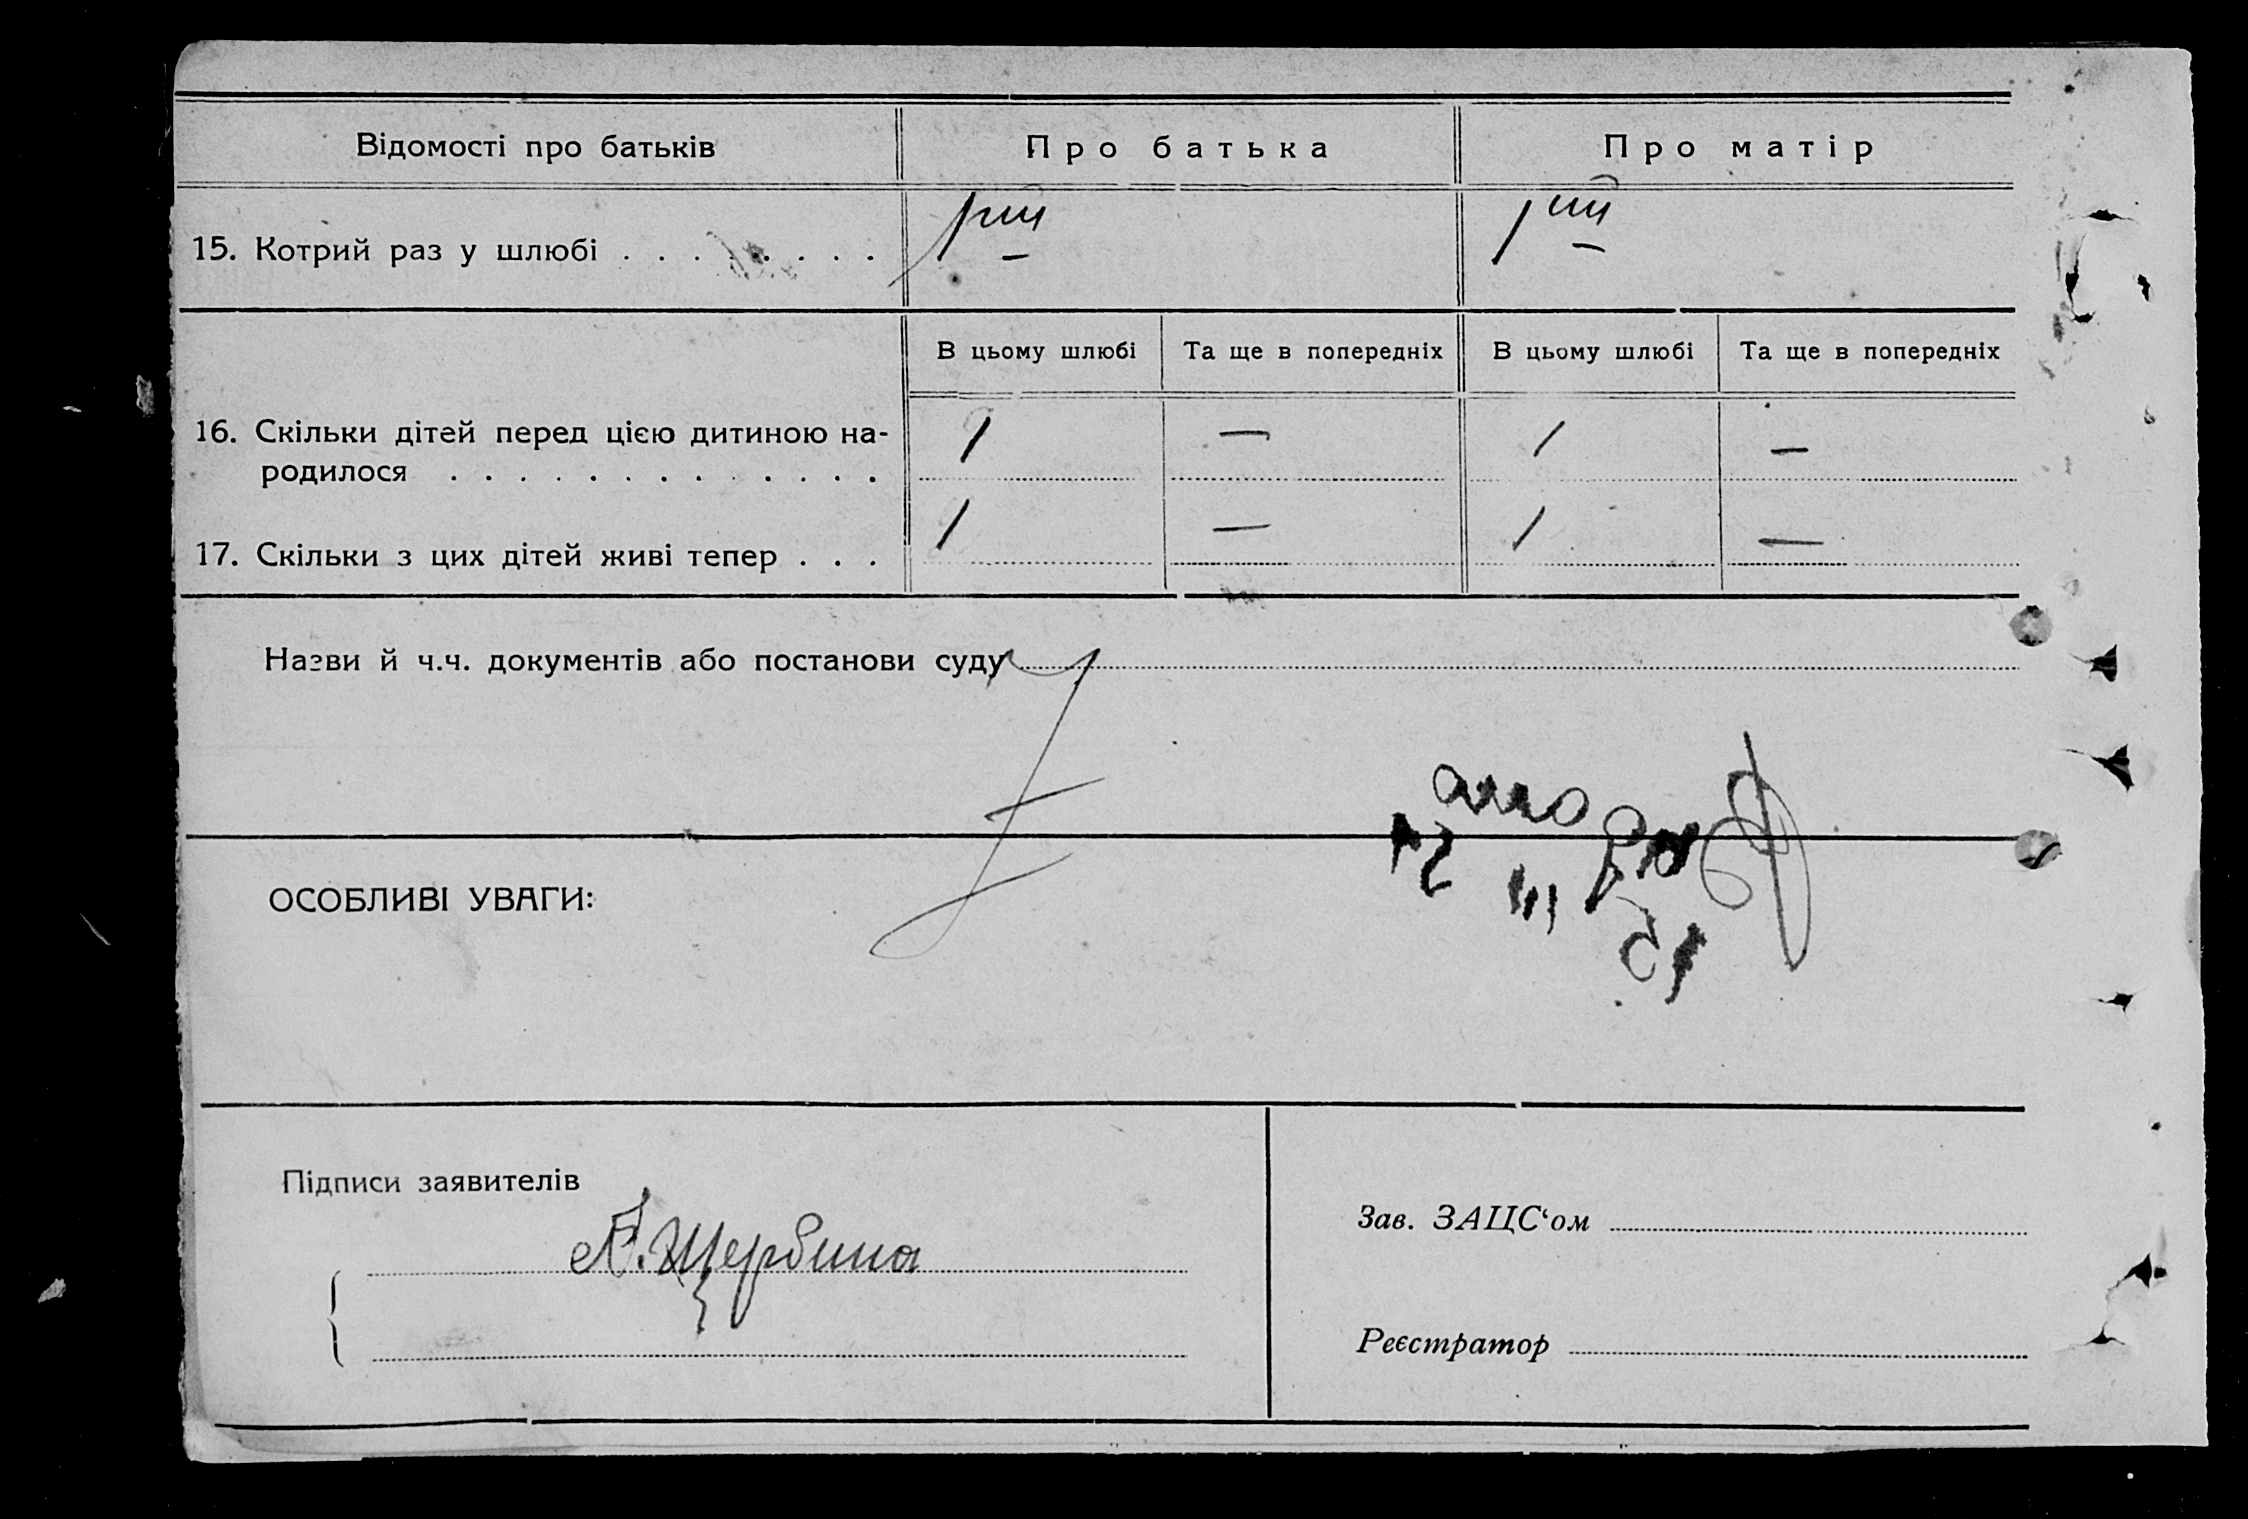 Відомості про батьків
Про батька
Про матір
15. Котрий раз у шлюбі . . . . . . . .
1ий
1ий
В цьому шлюбі
Та ще в попередніх
В цьому шлюбі
Та ще в попередніх
16. Скільки дітей перед цією дитиною на-
родилося . . . . . . . . . . . . .
1 — 1 —
17. Скільки з цих дітей живі тепер . . .
1 — 1 —
Назви й ч.ч. документів або постанови суду
ОСОБЛИВІ УВАГИ:
Підписи заявителів
А. Щербина
Зав. ЗАЦС‘ом
Реєстратор